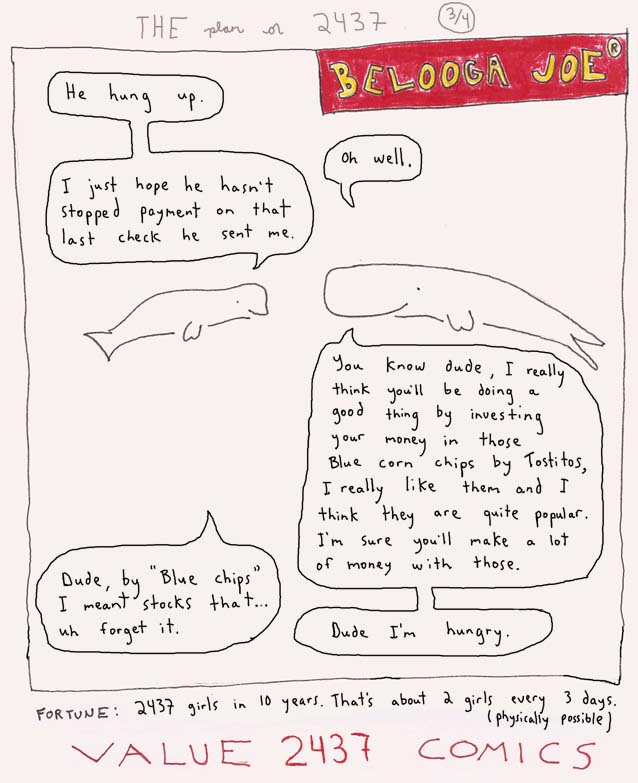 THE plan or 2437 3/4
BELOOGA JOE ®
He hung up.
I just hope he hasn't
stopped payment on that
last check he sent me.
Oh well.
You know dude, I really
think you'll be doing a
good thing by investing
your money in those
Blue corn chips by Tostitos,
I really like them and I
think they are quite popular.
I'm sure you'll make a lot
of money with those.
Dude, by "Blue chips"
I meant stocks that...
uh forget it.
Dude I'm hungry.
FORTUNE: 2437 girls in 10 years. That's about 2 girls every 3 days.
(physically possible)
VALUE 2437 COMICS